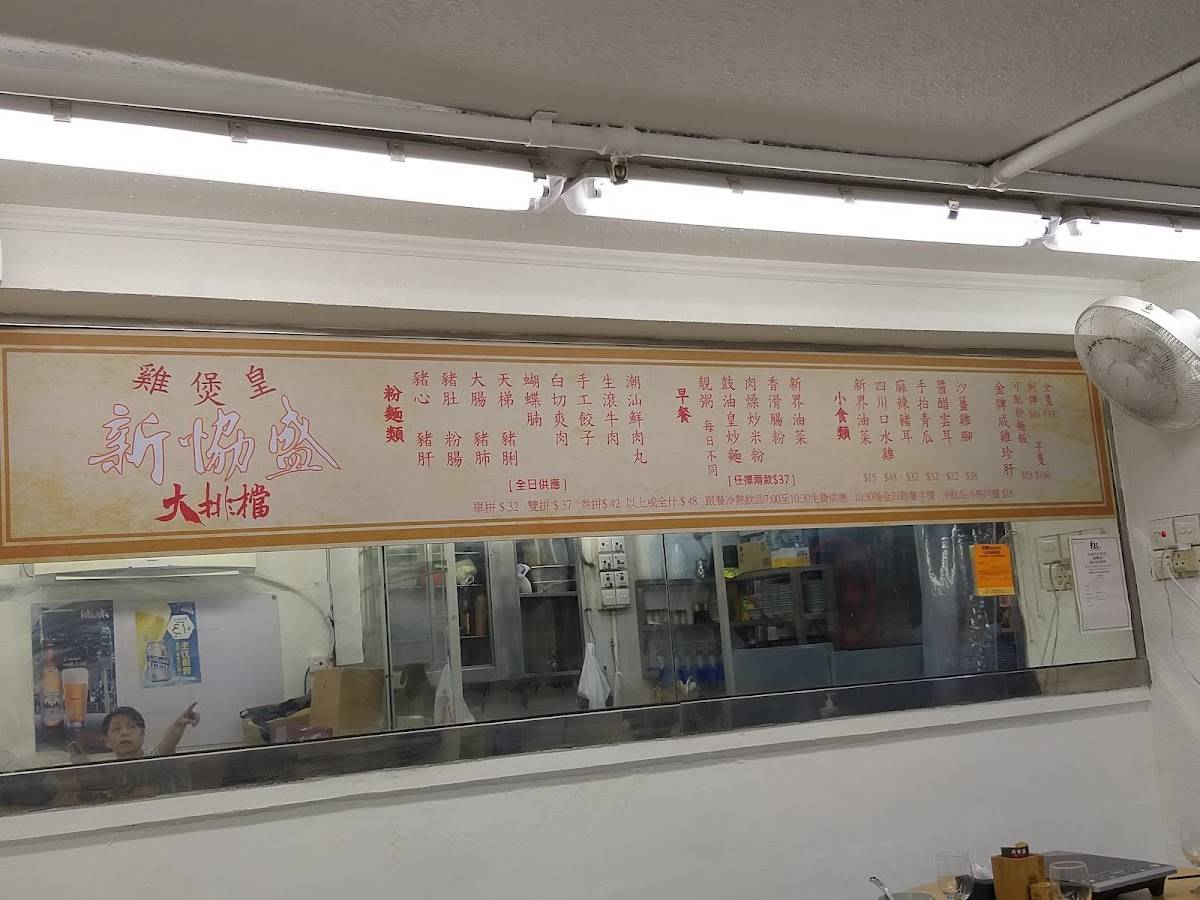 雞煲皇
新協盛
大排檔
粉麵類
豬心 豬肝
豬肚 粉腸
大腸 豬肺
天梯 豬脷
蝴蝶腩
白切爽肉
手工餃子
生滾牛肉
潮汕鮮肉丸
[全日供應]
單拼$32 雙拼$37 叁拼$42 以上或全什$48 跟餐冷熱飲品7:00至10:30免費供應 10:30後全日跟餐半價 淨飲品冷熱同價$16
早餐
靚粥 每日不同
鼓油皇炒麵
肉燥炒米粉
香滑腸粉
新界油菜
[任擇兩款$37]
小食類
新界油菜 $15
四川口水雞 $48
麻辣豬耳 $32
手拍青瓜 $32
醬醋雲耳 $32
沙薑雞腳 $38
金牌咸雞珍肝
可配粉麵飯 $58
例牌 $80 半隻 $160
全隻 $300